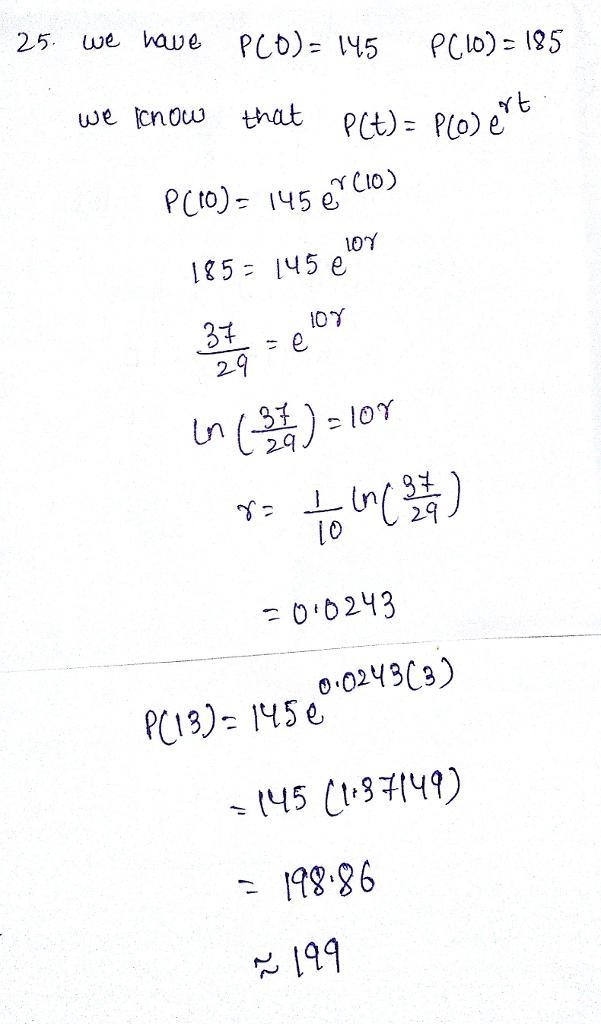 25. we have P(0) = 145 P(10) = 185
we know that P(t) = P(0) e^{rt}
P(10) = 145 e^{r(10)}
185 = 145 e^{10r}
37/29 = e^{10r}
ln (37/29) = 10r
r = 1/10 ln(37/29)
= 0.0243
P(13) = 145 e^{0.0243(3)}
= 145 (1.37149)
= 198.86
≈ 199